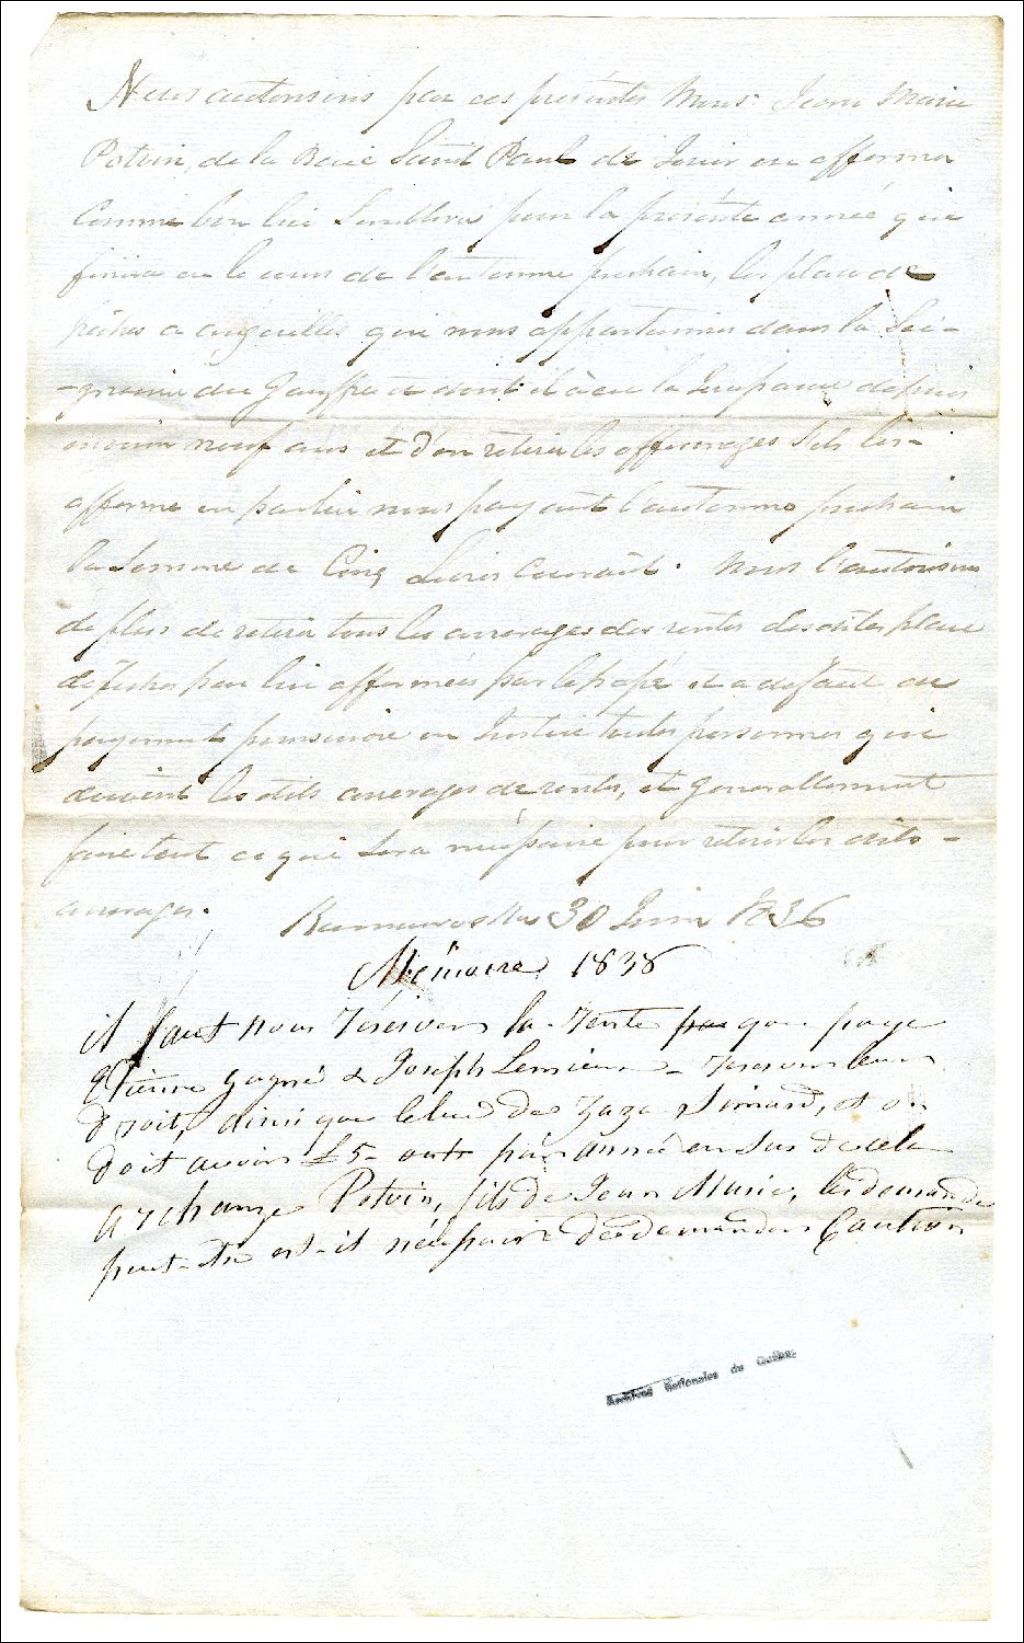 Nous autorisons par ces présentes Mons. Jean Marie
Potvin, de la Baie Saint Paul de Jouir ou affermer
Comme bon lui Semblera pour la présente année qui
finira en le cours de l'automne prochain, les place de
pêches a anguilles qui nous appartiennes dans la Sei-
-gneurie du Gouffre et dont il à eu la Jouissance depuis
environ neuf ans et d'en retirer les affermages s'ils les
afferme en par lui nous payant l'automne prochain
la Somme de Cinq Livres Courant. Nous l'autorisons
de plus de retirer tous les arrerages des rentes des dites place
de pêches par lui affermées par le passé et a défaut de
payement poursuivre en Justice toutes personnes qui
doivent les dits arrerages de rentes, et generallement
faire tout ce qui sera necessaire pour retirer les dits -
arrerages.
Kamouraska 30 Juin 1836
Mémoire 1838
il faut nous réserver la rente que paye
Etienne Gagné & Joseph Lemieux - réserver leurs
droit, ainsi que celui de Zaza Simard, et on
doit avoir £5 - par année en sus de cela
archange Potvin, fils de Jean Marie, les demande
peut-etre est-il nécessaire de demander Caution
Archives Nationales du Québec